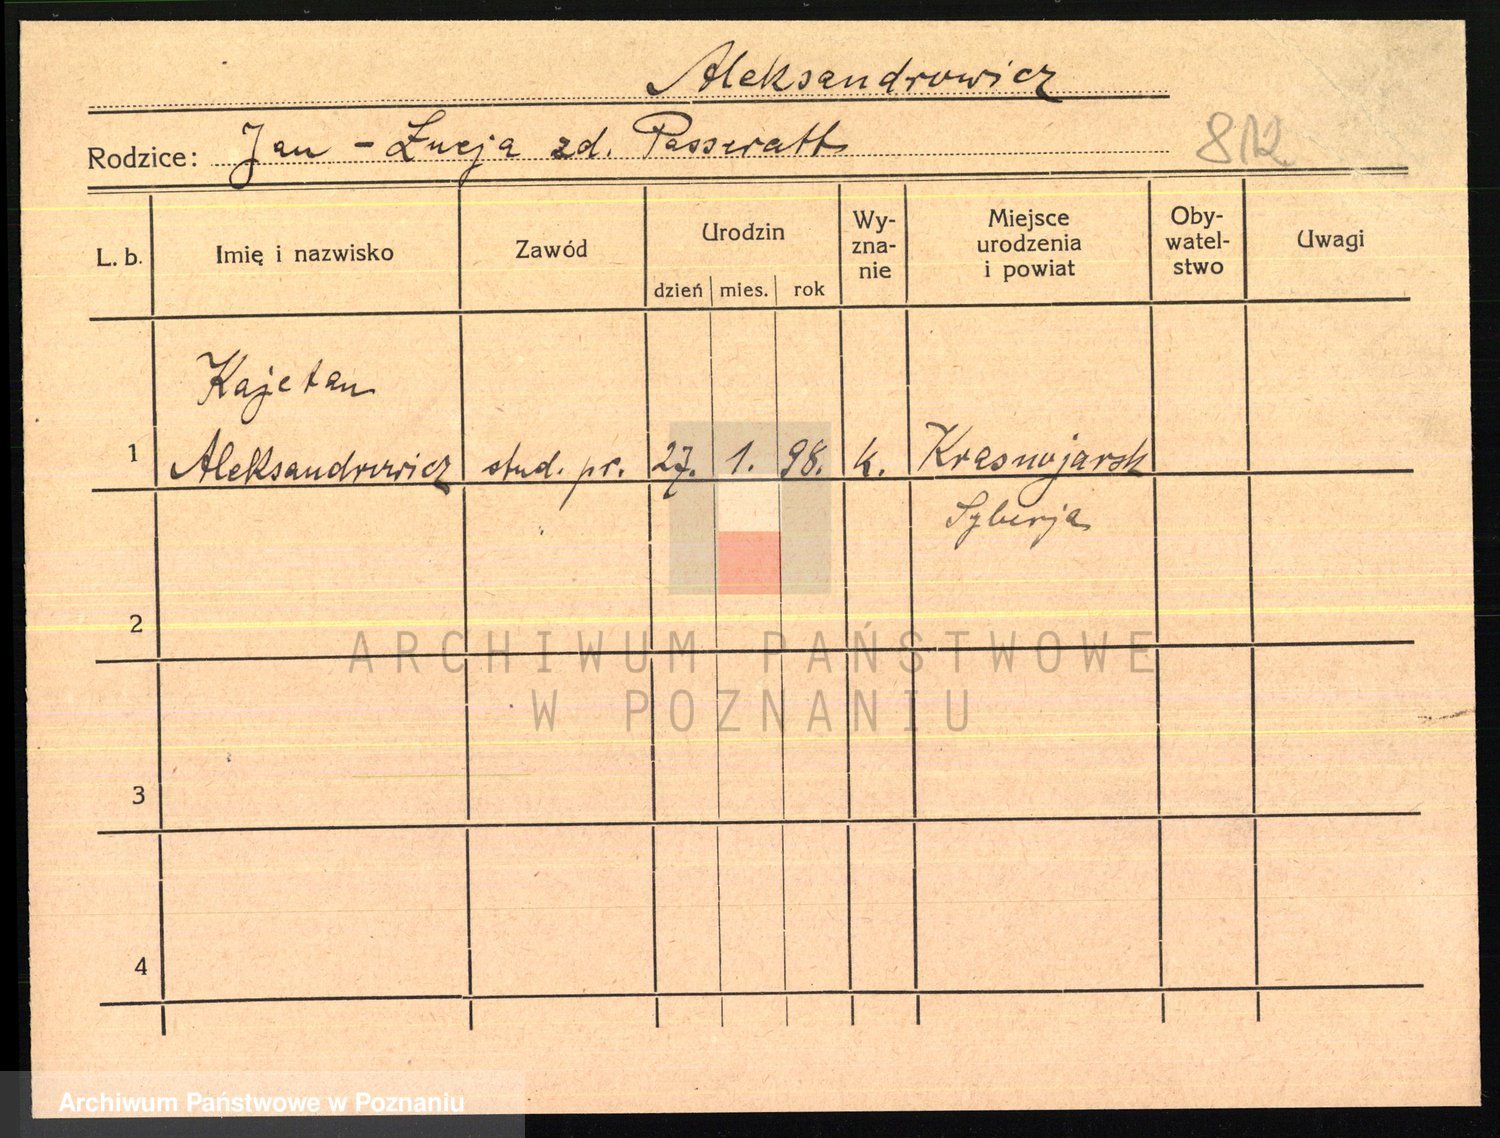 Aleksandrowicz
Rodzice: Jan - Łucja zd. Passeratt
812
L. b. Imię i nazwisko Zawód Urodzin Wy-zna-nie Miejsce urodzenia i powiat Oby-watel-stwo Uwagi
dzień mies. rok
Kajetan
1 Aleksandrowicz stud. pr. 27. 1. 98. k. Krasnojarsk
Syberja
2
ARCHIWUM PAŃSTWOWE
W POZNANIU
3
4
Archiwum Państwowe w Poznaniu